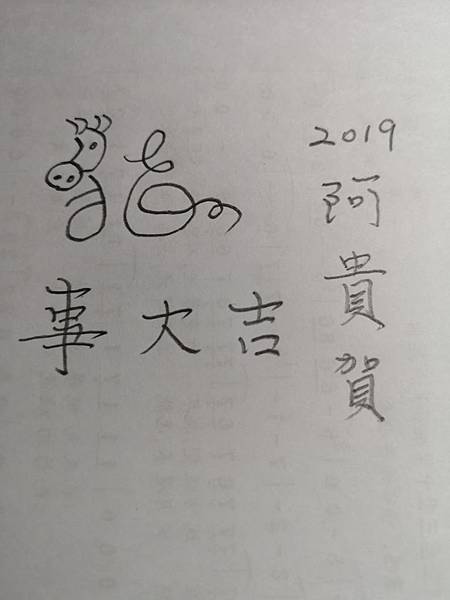 事大吉
2019
阿貴賀